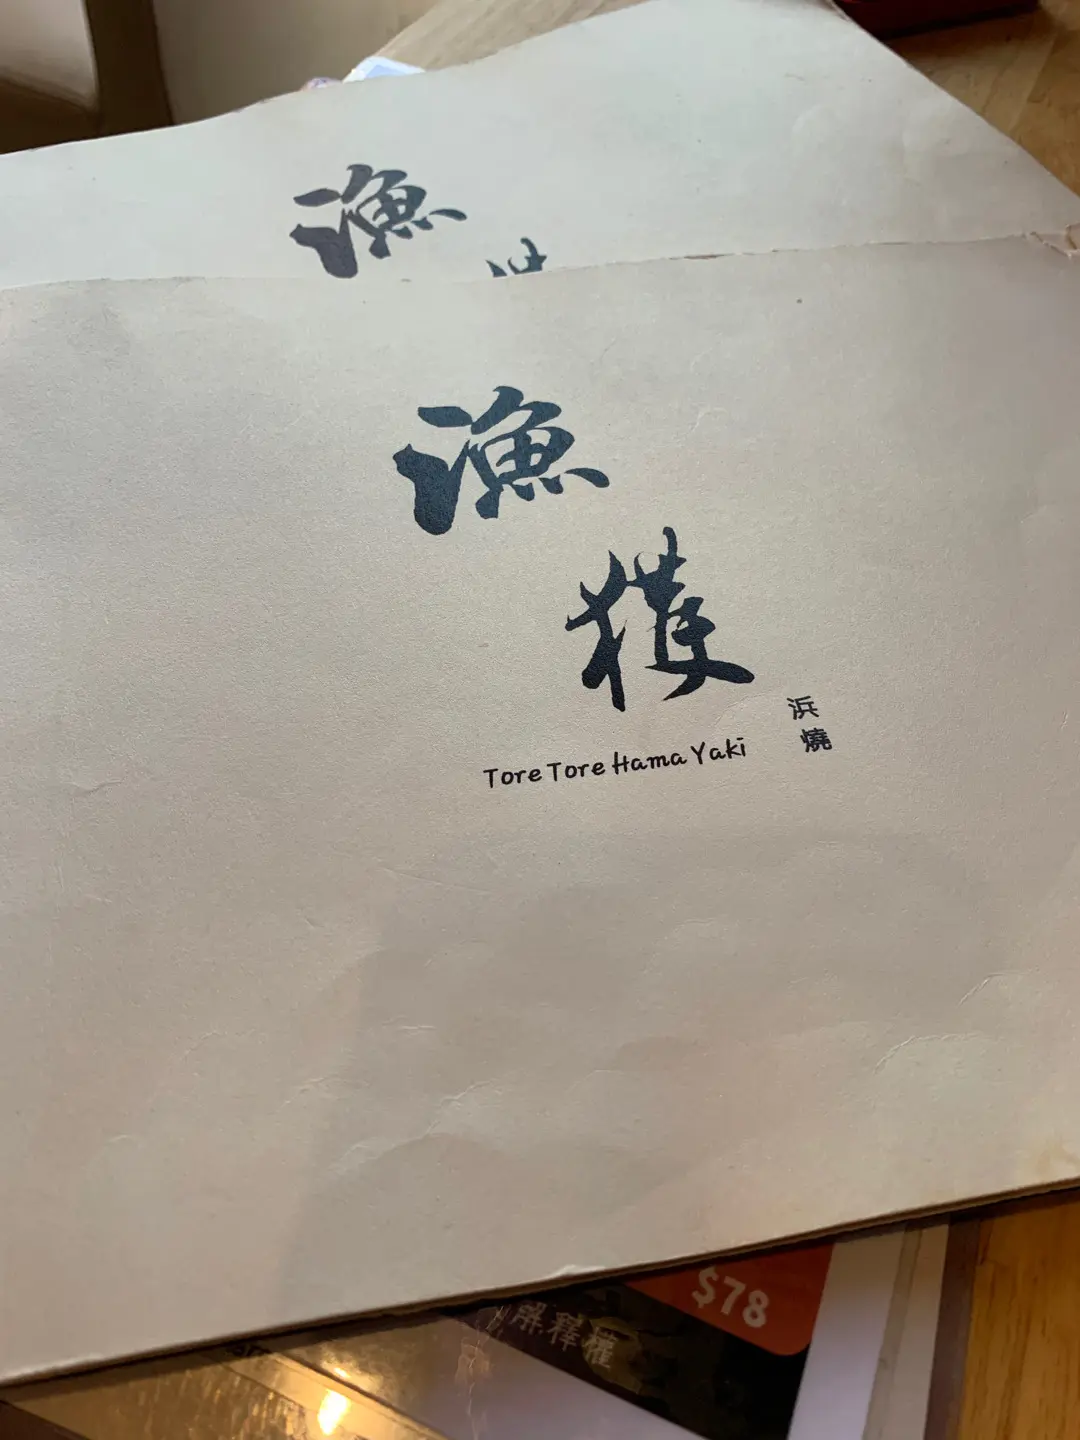 漁
漁
獲
浜
燒
Tore Tore Hama Yaki
$78
解釋權